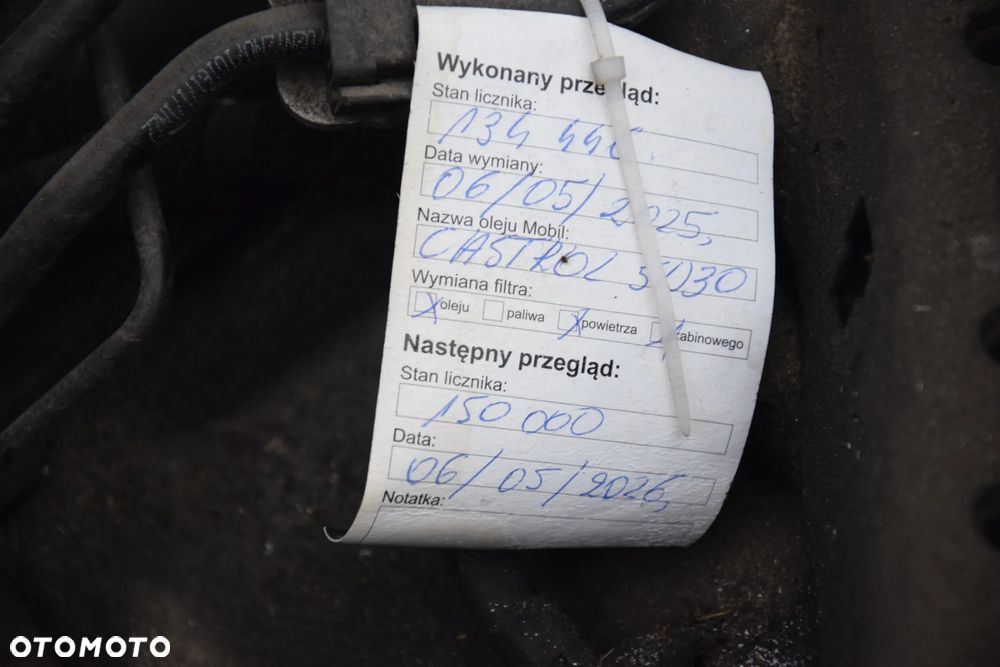 Wykonany przegląd:
Stan licznika:
134 446.
Data wymiany:
06/05/2025,
Nazwa oleju Mobil:
CASTROL 5W30
Wymiana filtra:
X oleju paliwa X powietrza X kabinowego
Następny przegląd:
Stan licznika:
150 000
Data:
06/05/2026,
Notatka:
OTOMOTO